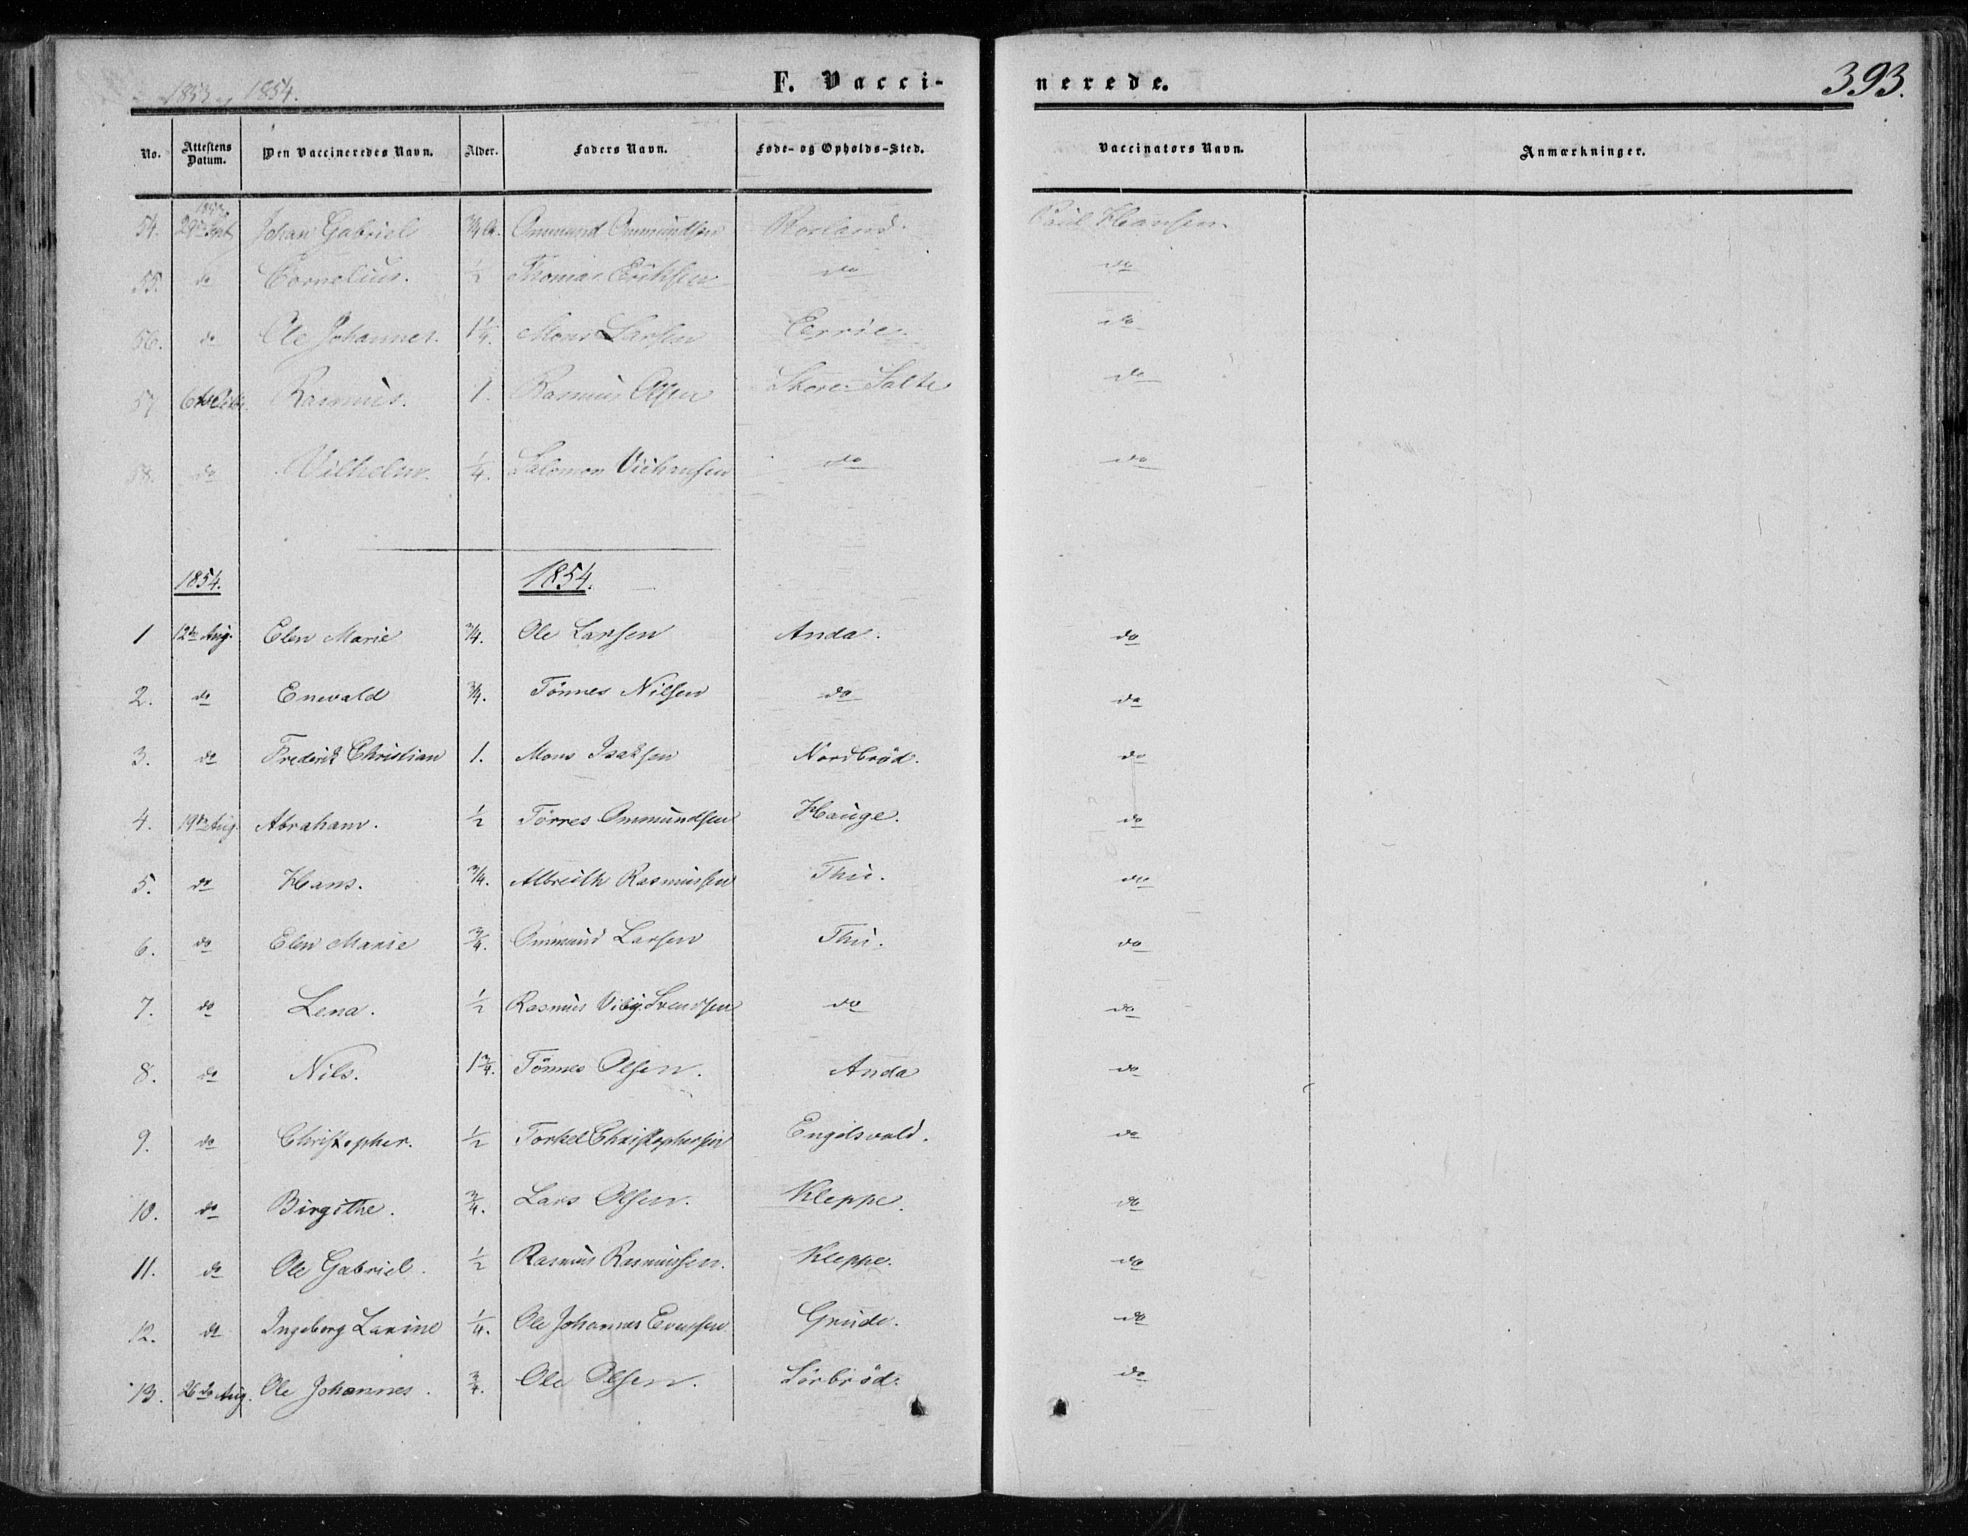 1853 og 1854.
F. Vacci-
nerede.
393.
No. Attestens Datum. Den Vaccineredes Navn. Alder. Faders Navn. Føde- og Opholds-Sted. Vaccinators Navn. Anmærkninger.
1853
54. 29de Spt. Johan Gabriel 3/4 A. Ommund Ommundsen Paul Hansen
55. do Cornelius. 1/2 Thomas Erichsen do do
56. do Ole Johannes. 1 1/4. Mons Larsen do
57 6te Rasmus. 1. Rasmus Olsen Store Salte do
58. do Vilhelm. 1/4. Salomon do do
1854. 1854.
1 12te Aug. Elen Marie 3/4. Ole Larsen Anda. do
2. do Enevald 3/4. Tönnes Nilsen do do
3. do Frederik Christian 1. Mons Isaksen Nordbröd. do
4. 19de Aug. Abraham. 1/2 Törres Ommundsen Hauge. do
5. do Hans. 3/4. Albreith Rasmussen Thu. do
6. do Elen Marie 3/4. Ommund Larsen Thu. do
7. do Lena. 1/2 Rasmus Vibg. Svendsen do do
8. do Nils. 1 3/4. Tönnes Olsen. Anda do
9. do Christopher. 1/2 Torkel Christophersen Engelsvold. do
10. do Birgithe. 3/4. Lars Olsen. Kleppe. do
11. do Ole Gabriel. 1/2 Rasmus Rasmussen. Kleppe. do
12. do Ingeborg Larine 1/4. Ole Johannes Evensen Grude. do
13. 26de Aug. Ole Johannes. 3/4. Ole Olsen. Sörbröd. do